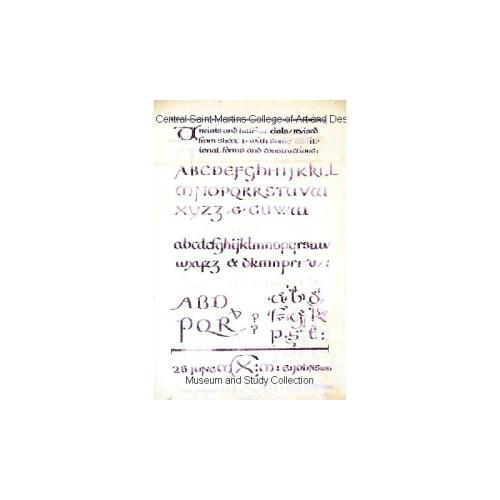 Central Saint Martins College of Art and Des
Uncials and half cials, revised
from sheet 1. with some
ional forms and constructions:
ABCDEFGHHIJKKLL
MNOPQRRSTUVW
XYZ & G U W
abcdefghijklmnopqrstuvw
wxyz & dkmnpr
ABD
PQR
?
?
28 JUNE M X M: E. JOHNSTON
Museum and Study Collection